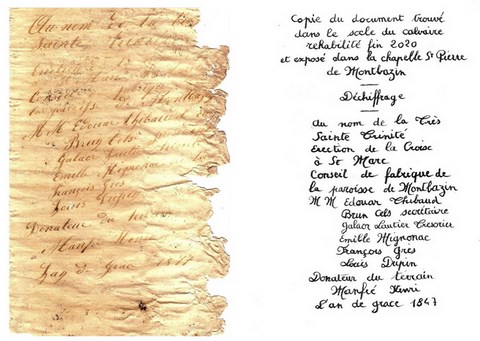 Au nom de la
Sainte
M.M Edouar Thibaud
Brun Cels
Galaor Lautier
Emille Mignonac
François Gres
Louis Dupin
Donateur du
Manfré
L'an de Grace 1847
Copie du document trouvé
dans le socle du calvaire
rehabilité fin 2020
et exposé dans la chapelle St Pierre
de Montbazin
Déchiffrage
au nom de la Très
Sainte Trinité
Erection de la Croise
à St Marc
Conseil de fabrique de
la paroisse de Montbazin
M M Edouar Thibaud
Brun Cels secrétaire
Galaor Lautier Tresorier
Emille Mignonac
François Gres
Louis Dupin
Donateur du terrain
Manfré Henri
L'an de grace 1847